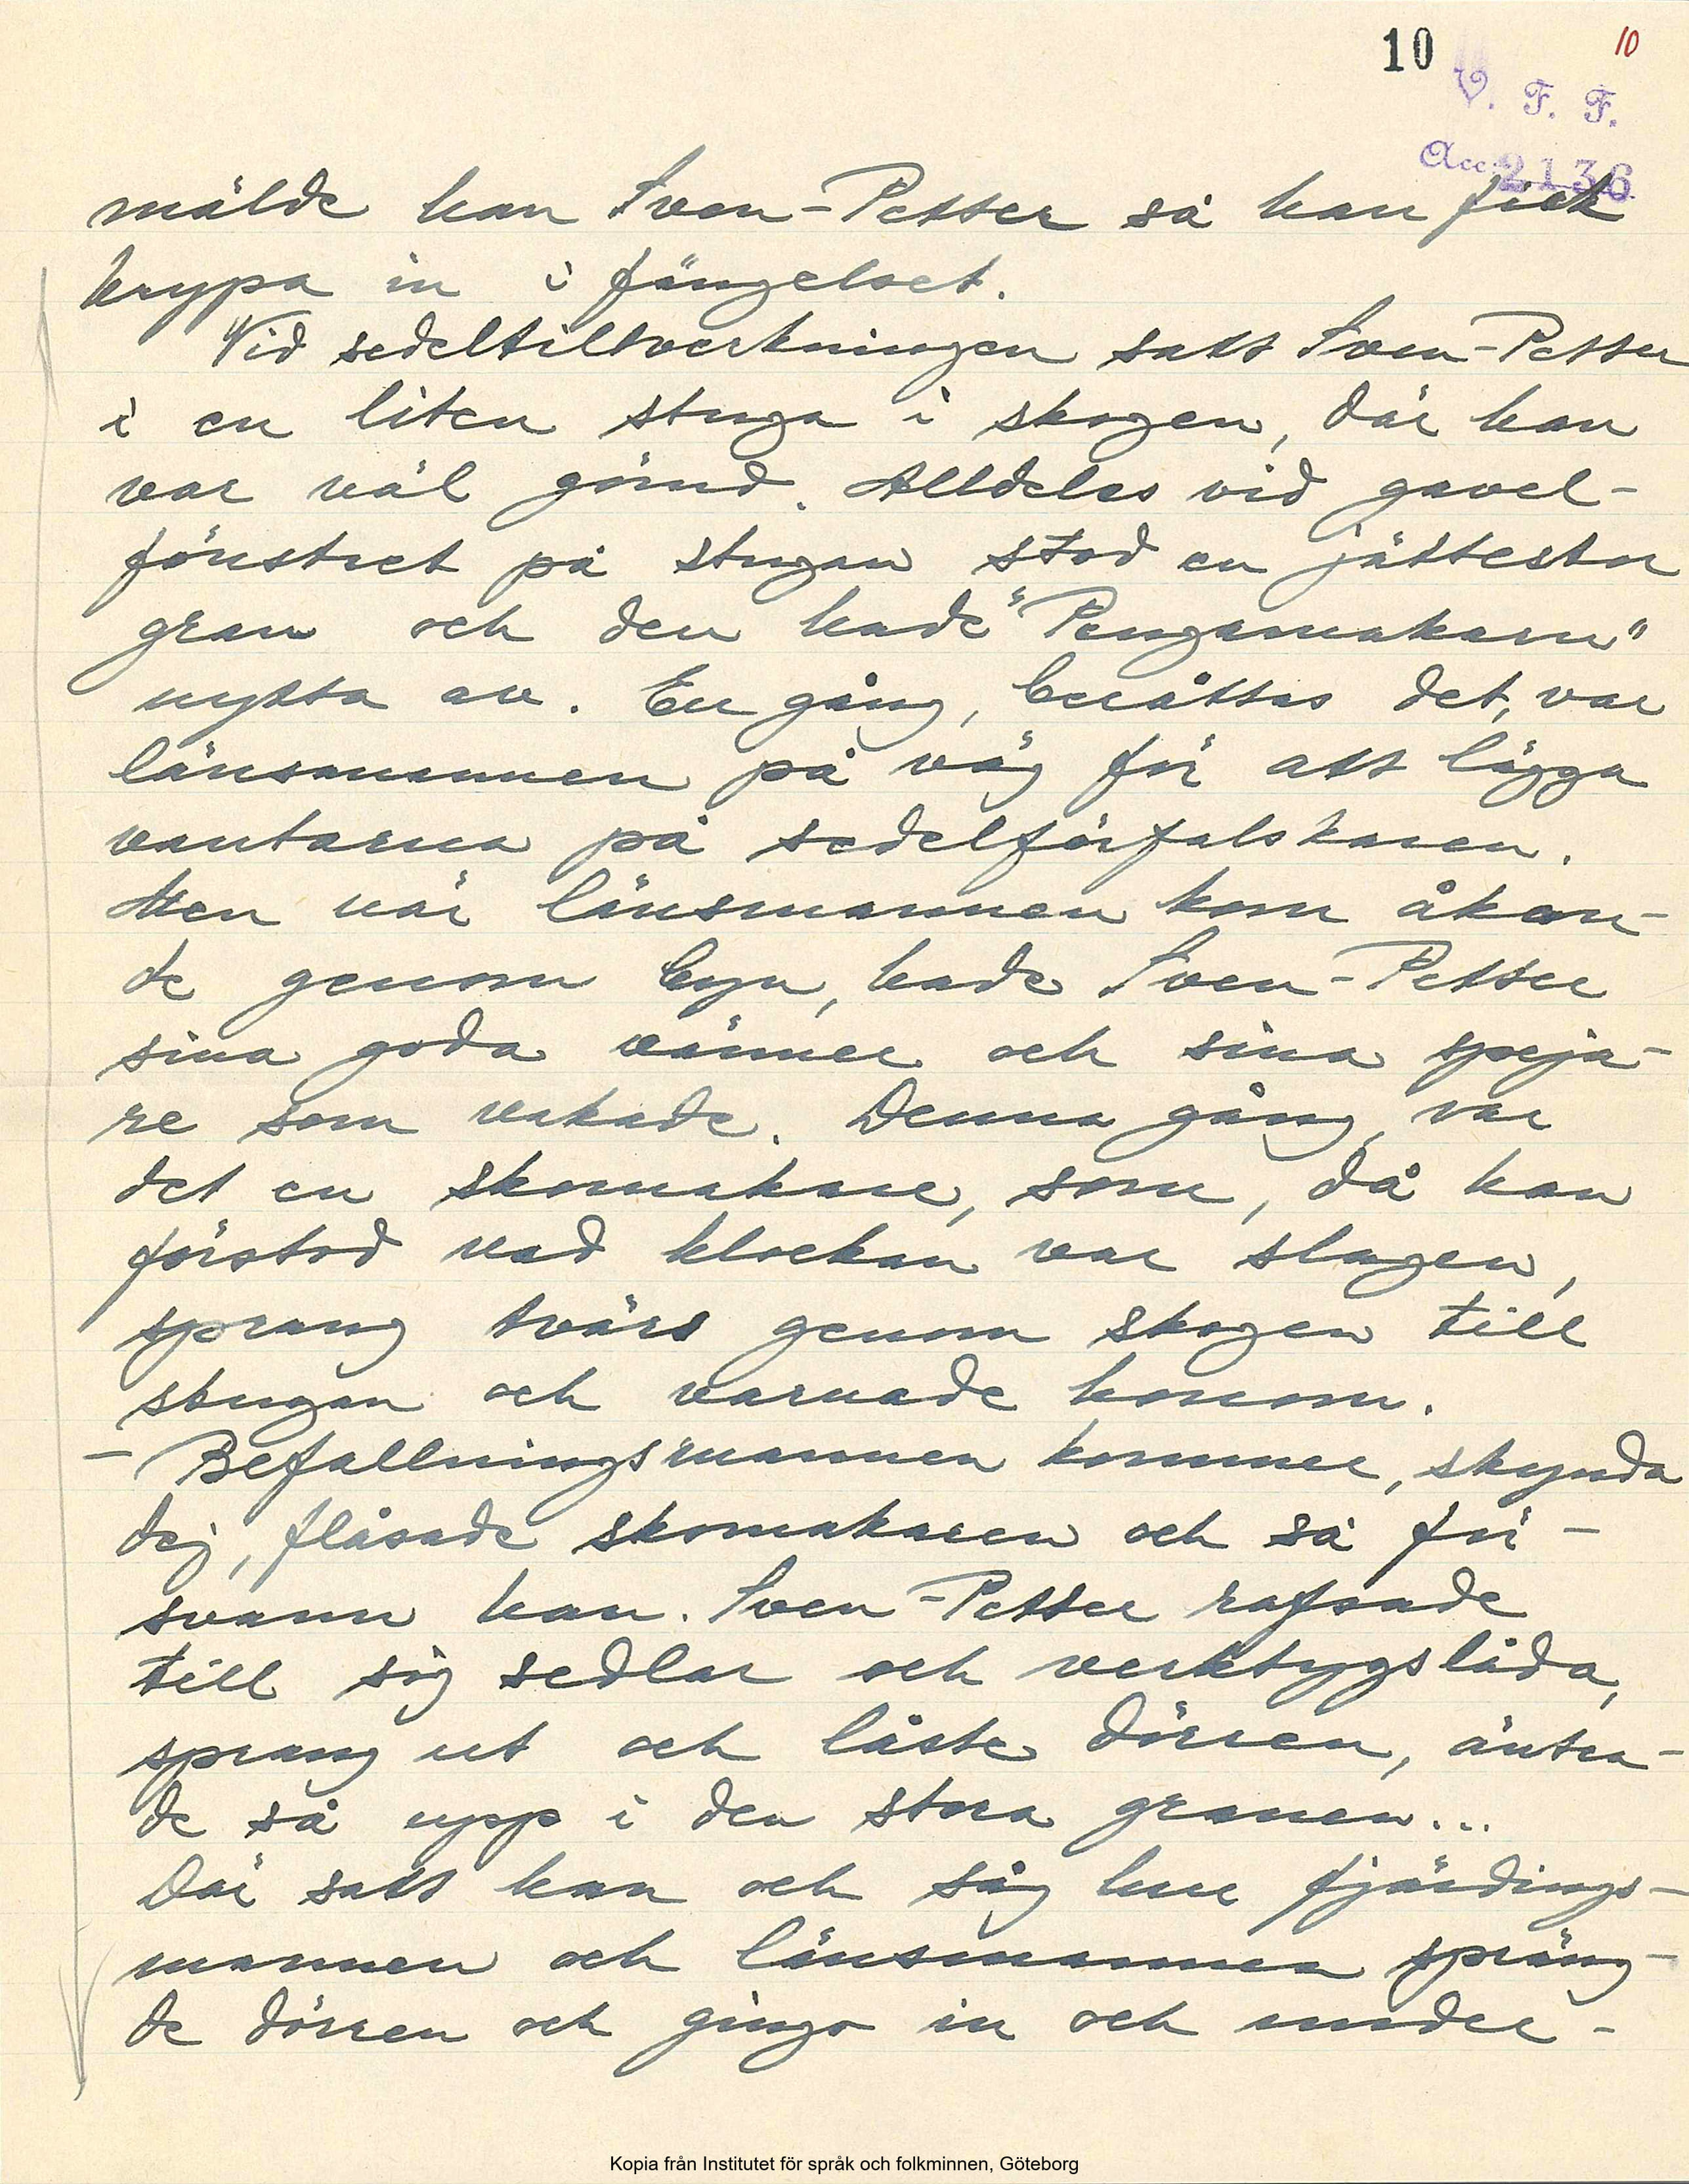 10
10
V. F. F.
Acc. 2136
mälde han Sven-Petter så han fick
krypa in i fängelset.
Vid sedeltillverkningen satt Sven-Petter
i en liten stuga i skogen, där han
var väl gömd. Alldeles vid gavel-
fönstret på stugan stod en jättestor
gran och den hade "Pengamakarn"
nytta av. En gång, berättas det, var
länsmannen på väg för att lägga
vantarna på sedelförfalskaren.
Men när länsmannen kom åkan-
de genom byn, hade Sven-Petter
sina goda vänner och sina speja-
re som vakade. Denna gång, var
det en skomakare, som, då han
förstod vad klockan var slagen,
sprang tvärs genom skogen till
stugan och varnade honom.
- Befallningsmannen kommer, skynda
dej, flåsade skomakaren och så för-
svann han. Sven-Petter rafsade
till sig sedlar och verktygslåda,
sprang ut och låste dörren, äntra-
de så upp i den stora granen...
Där satt han och såg hur fjärdings-
mannen och länsmannen spräng-
de dörren och gingo in och under-
Kopia från Institutet för språk och folkminnen, Göteborg